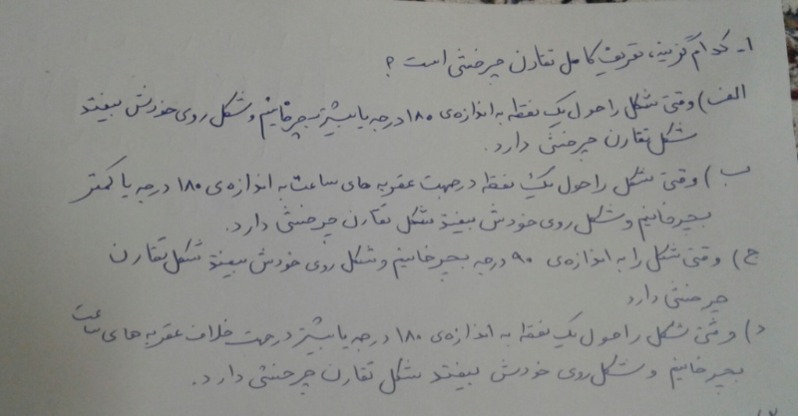 ۱- کدام گزینه، تعریف کامل تقارن چرخشی است؟
الف) وقتی شکل را حول یک نقطه به اندازه‌ی ۱۸۰ درجه یا بیشتر بچرخانیم و شکل روی خودش بیفتد
شکل تقارن چرخشی دارد.
ب) وقتی شکل را حول یک نقطه در جهت عقربه های ساعت به اندازه‌ی ۱۸۰ درجه یا کمتر
بچرخانیم و شکل روی خودش بیفتد شکل تقارن چرخشی دارد.
ج) وقتی شکل را به اندازه‌ی ۹۰ درجه بچرخانیم و شکل روی خودش بیفتد شکل تقارن
چرخشی دارد
د) وقتی شکل را حول یک نقطه به اندازه‌ی ۱۸۰ درجه یا بیشتر در جهت خلاف عقربه های ساعت
بچرخانیم و شکل روی خودش بیفتد شکل تقارن چرخشی دارد.